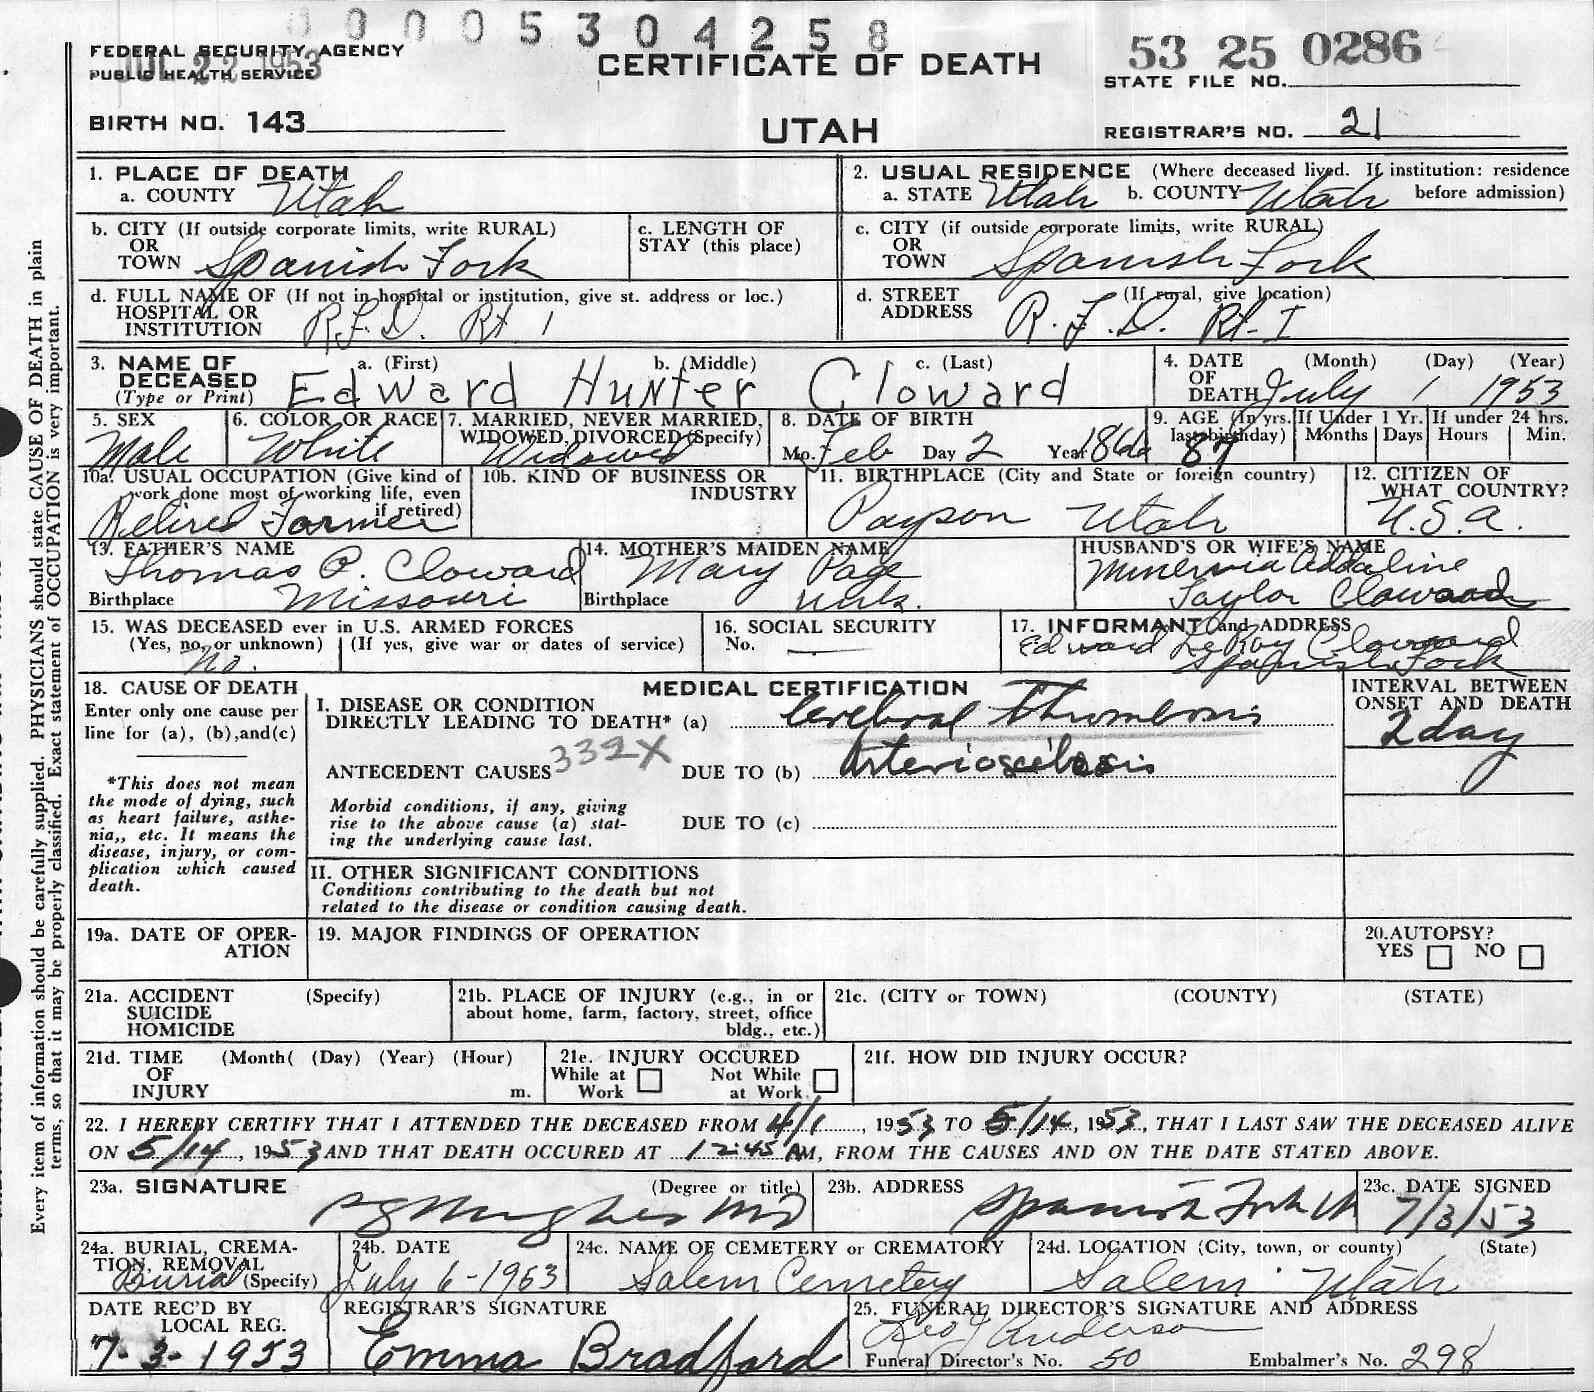 00005304258
FEDERAL SECURITY AGENCY
PUBLIC HEALTH SERVICE
JUL 22 1953
CERTIFICATE OF DEATH
UTAH
53 25 0286
STATE FILE NO.
BIRTH NO. 143
REGISTRAR'S NO. 21
1. PLACE OF DEATH
a. COUNTY Utah
2. USUAL RESIDENCE (Where deceased lived. If institution: residence
a. STATE Utah b. COUNTY Utah before admission)
b. CITY (If outside corporate limits, write RURAL)
OR
TOWN Spanish Fork
c. LENGTH OF
STAY (this place)
c. CITY (if outside corporate limits, write RURAL)
OR
TOWN Spanish Fork
d. FULL NAME OF (If not in hospital or institution, give st. address or loc.)
HOSPITAL OR
INSTITUTION R.F.D. Rt 1
d. STREET (If rural, give location)
ADDRESS R.F.D. Rt-I
3. NAME OF a. (First) b. (Middle) c. (Last)
DECEASED
(Type or Print) Edward Hunter Cloward
4. DATE (Month) (Day) (Year)
OF
DEATH July 1 1953
5. SEX
Male
6. COLOR OR RACE
White
7. MARRIED, NEVER MARRIED,
WIDOWED, DIVORCED (Specify)
Widowed
8. DATE OF BIRTH
Mo. Feb Day 2 Year 186
9. AGE (In yrs.
last birthday)
87
If Under 1 Yr.
Months Days
If under 24 hrs.
Hours Min.
10a. USUAL OCCUPATION (Give kind of
work done most of working life, even
if retired)
Retired Farmer
10b. KIND OF BUSINESS OR
INDUSTRY
11. BIRTHPLACE (City and State or foreign country)
Payson Utah
12. CITIZEN OF
WHAT COUNTRY?
U.S.A.
13. FATHER'S NAME
Thomas P. Cloward
Birthplace Missouri
14. MOTHER'S MAIDEN NAME
Mary Page
Birthplace Unk.
HUSBAND'S OR WIFE'S NAME
Minervia Addaline
Taylor Cloward
15. WAS DECEASED ever in U.S. ARMED FORCES
(Yes, no, or unknown) (If yes, give war or dates of service)
No.
16. SOCIAL SECURITY
No.
17. INFORMANT and ADDRESS
Edward LeRoy Cloward
Spanish Fork
18. CAUSE OF DEATH
Enter only one cause per
line for (a), (b),and(c)
*This does not mean
the mode of dying, such
as heart failure, asthe-
nia,, etc. It means the
disease, injury, or com-
plication which caused
death.
MEDICAL CERTIFICATION
I. DISEASE OR CONDITION
DIRECTLY LEADING TO DEATH* (a) Cerebral Thrombosis
332X
ANTECEDENT CAUSES DUE TO (b) Arteriosclerosis
Morbid conditions, if any, giving
rise to the above cause (a) stat-
ing the underlying cause last.
DUE TO (c)
II. OTHER SIGNIFICANT CONDITIONS
Conditions contributing to the death but not
related to the disease or condition causing death.
INTERVAL BETWEEN
ONSET AND DEATH
2 day
19a. DATE OF OPER-
ATION
19. MAJOR FINDINGS OF OPERATION
20. AUTOPSY?
YES NO
21a. ACCIDENT (Specify)
SUICIDE
HOMICIDE
21b. PLACE OF INJURY (e.g., in or
about home, farm, factory, street, office
bldg., etc.)
21c. (CITY or TOWN) (COUNTY) (STATE)
21d. TIME (Month( (Day) (Year) (Hour)
OF
INJURY m.
21e. INJURY OCCURED
While at Not While
Work at Work
21f. HOW DID INJURY OCCUR?
22. I HEREBY CERTIFY THAT I ATTENDED THE DECEASED FROM 4/1, 1953 TO 5/14, 1953, THAT I LAST SAW THE DECEASED ALIVE
ON 5/14, 1953 AND THAT DEATH OCCURED AT 12:45 AM, FROM THE CAUSES AND ON THE DATE STATED ABOVE.
23a. SIGNATURE (Degree or title)
Hughes MD
23b. ADDRESS
Spanish Fork Ut
23c. DATE SIGNED
7/3/53
24a. BURIAL, CREMA-
TION, REMOVAL
Burial (Specify)
24b. DATE
July 6-1953
24c. NAME OF CEMETERY or CREMATORY
Salem Cemetery
24d. LOCATION (City, town, or county) (State)
Salem Utah
DATE REC'D BY
LOCAL REG.
7-3-1953
REGISTRAR'S SIGNATURE
Emma Bradford
25. FUNERAL DIRECTOR'S SIGNATURE AND ADDRESS
Leo J Anderson
Funeral Director's No. 50 Embalmer's No. 298
Every item of information should be carefully supplied. PHYSICIANS should state CAUSE OF DEATH in plain
terms, so that it may be properly classified. Exact statement of OCCUPATION is very important.